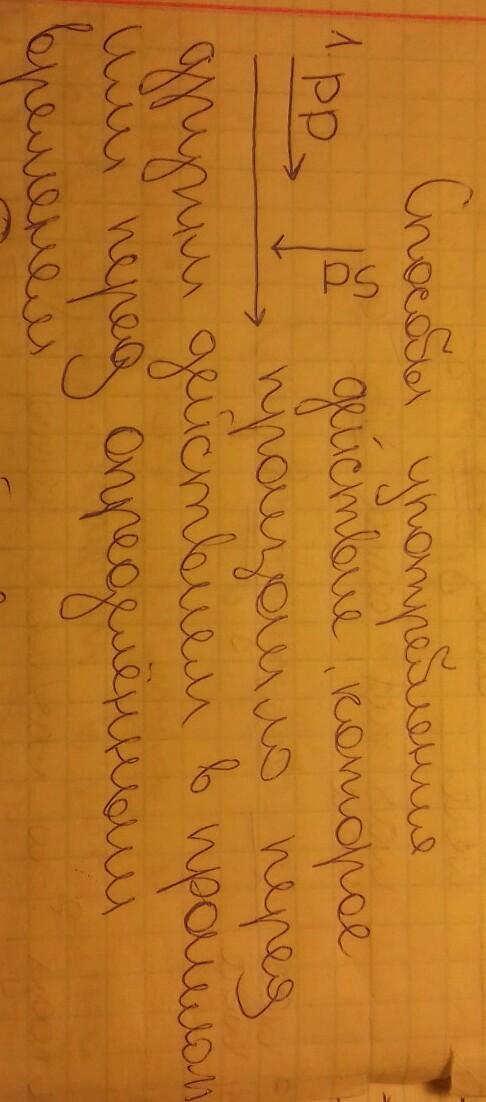 Способы употребления
1. PP PS действие, которое
произошло перед
другим действием в прошлом
или перед определённым
временем